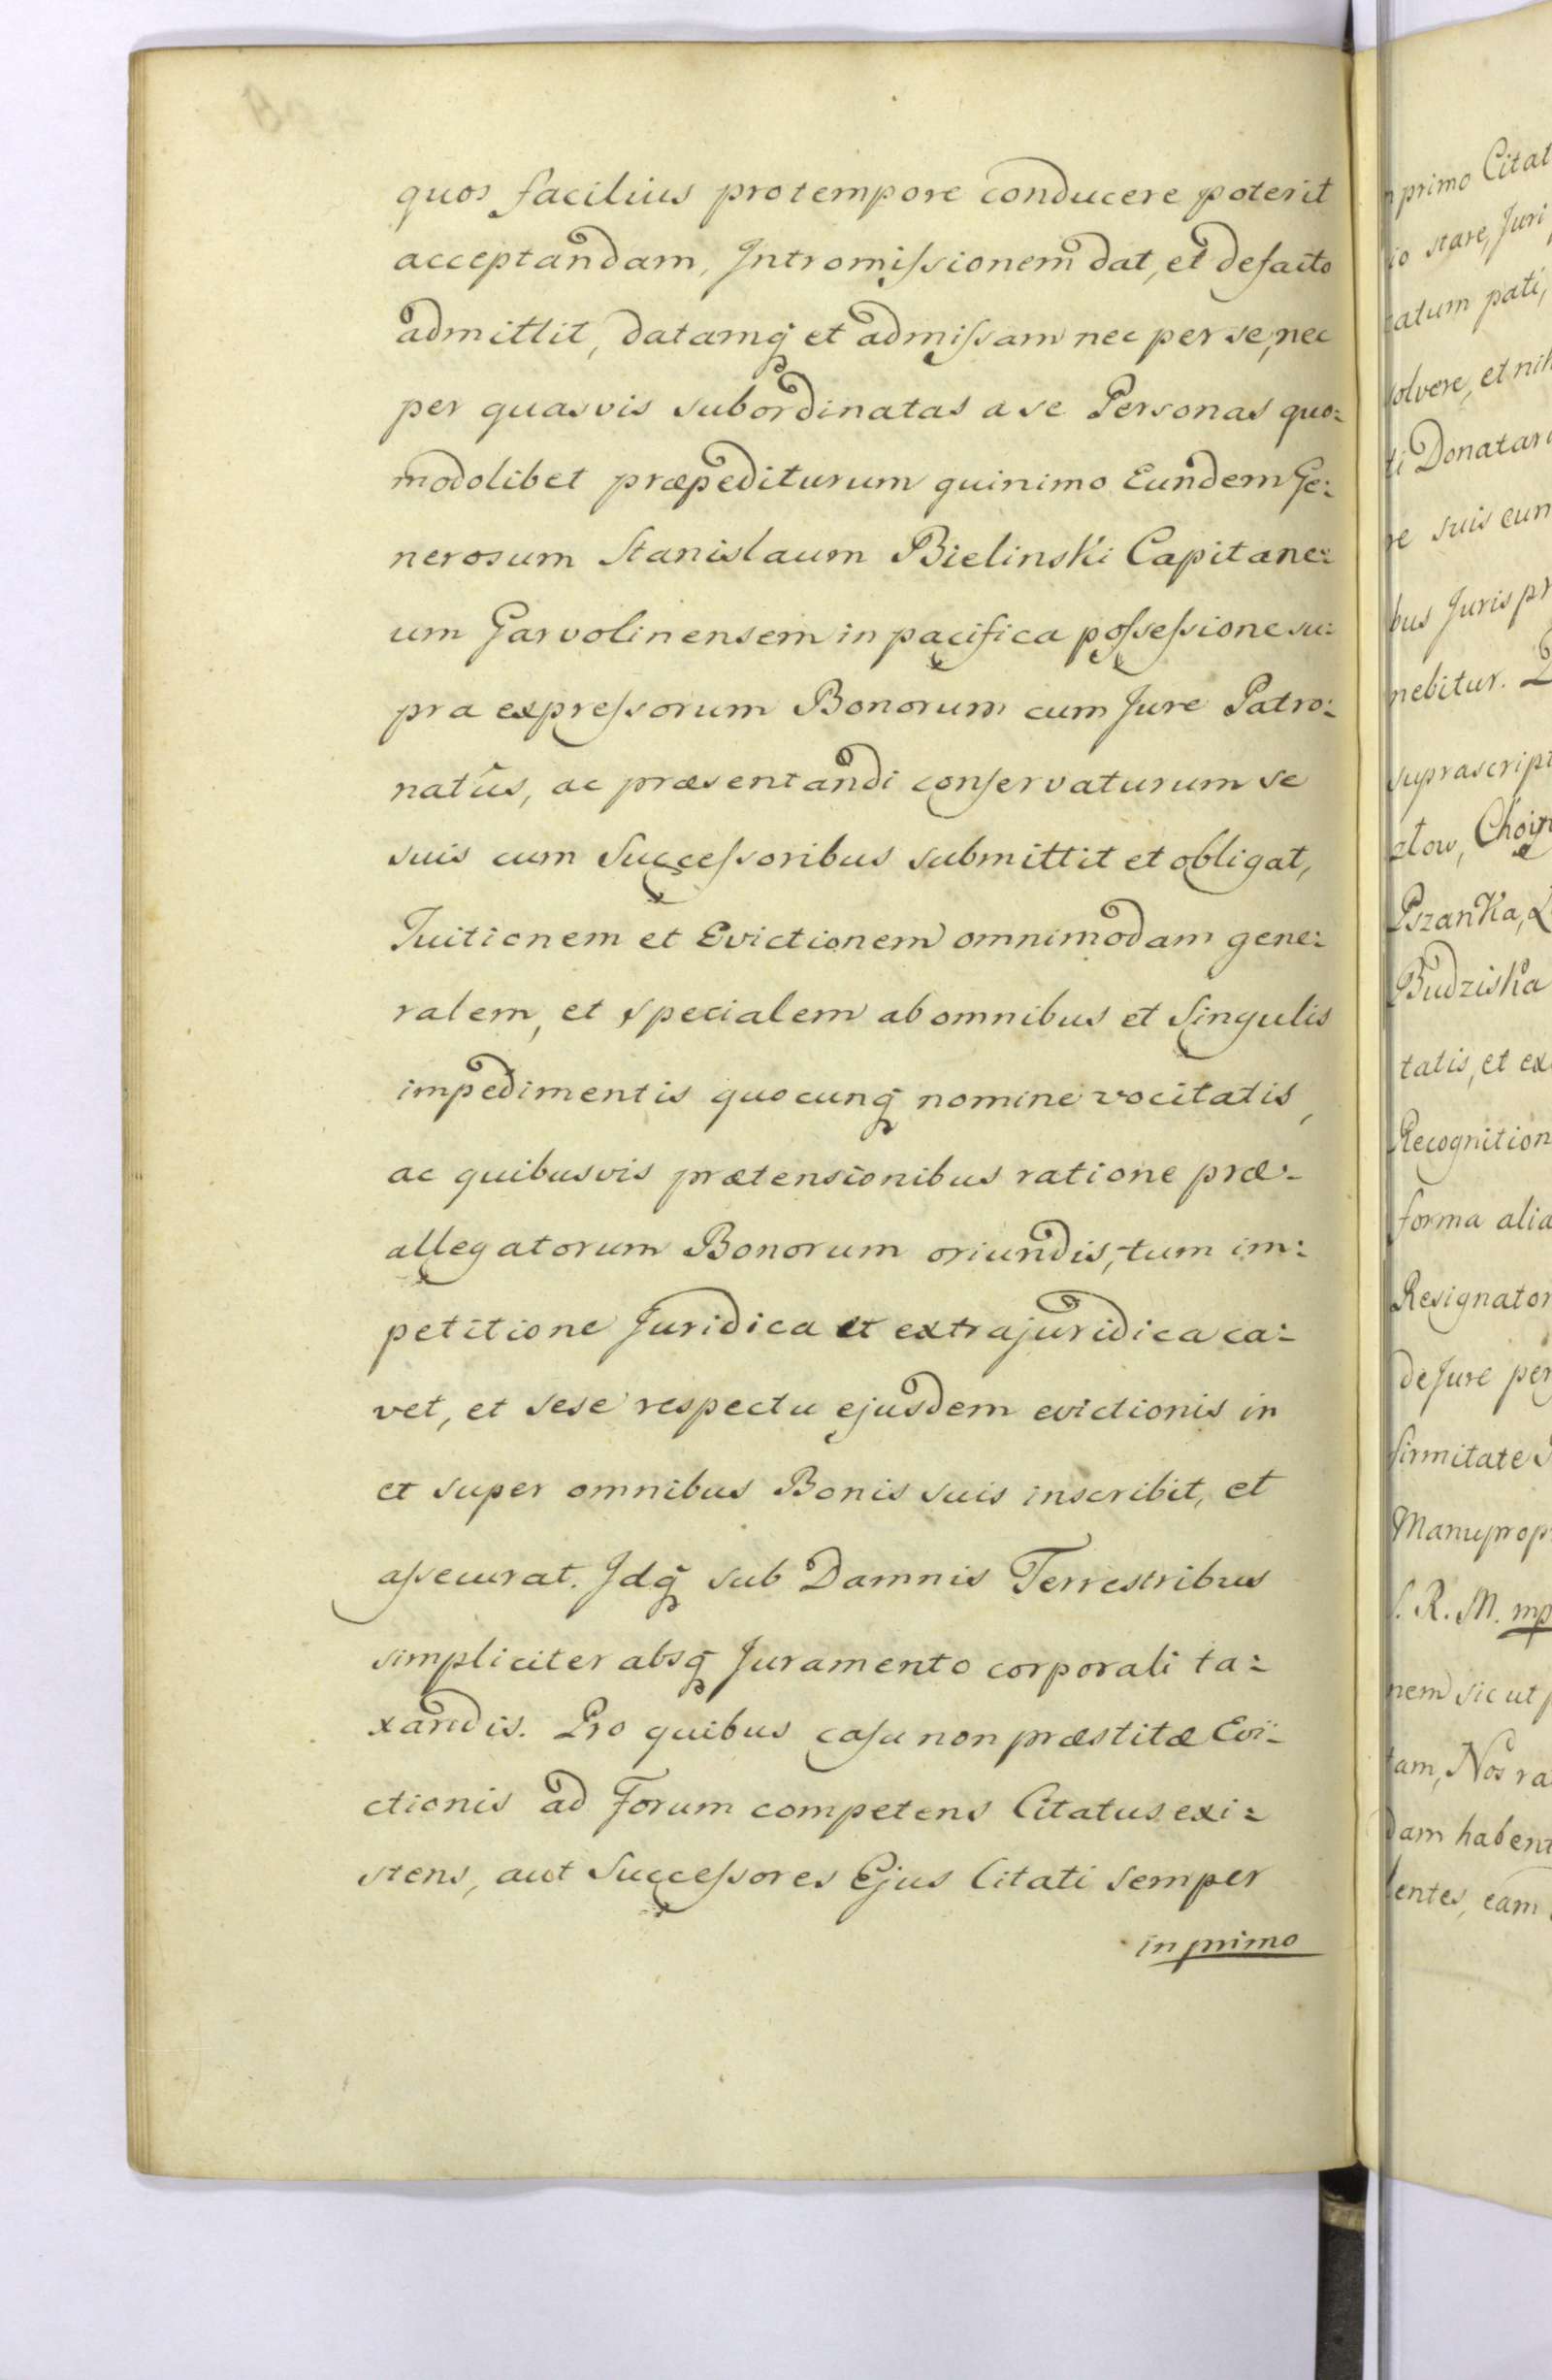 quos facilius protempore conducere poterit
acceptandam, Intromissionem dat, et defacto
admittit, datamq̃ et admissam nec per se, nec
per quasvis subordinatas a se Personas quo:
modolibet præpediturum quinimo Eundem Ge:
nerosum Stanislaum Bielinski Capitane:
um Garvolinensem in pacifica possessione su:
pra expressorum Bonorum cum Jure Patro:
natûs, ac præsentandi conservaturum se
suis cum Successoribus submittit et obligat,
Tuitionem et Evictionem omnimodam gene:
ralem, et specialem ab omnibus et Singulis
impedimentis quocunq̃ nomine vocitatis,
ac quibusvis prætensionibus ratione præ-
allegatorum Bonorum oriundis, tum im:
petitione Juridica et extrajuridica ca:
vet, et sese respectu ejusdem evictionis in
et super omnibus Bonis suis inscribit, et
assecurat. Idq̃ sub Damnis Terrestribus
simpliciter absq̃ Juramento corporali ta:
xandis. Pro quibus casu non præstitæ Evi-
ctionis ad Forum competens Citatus exi:
stens, aut Successores Ejus Citati semper
in primo
primo Citat
io stare, Juri
catum pati,
solvere, et nih
ti Donatar
re suis cum
bus Juris pr
nebitur.
suprascript
atow, Choin
Pszanka,
Budziska
tatis, et ex
Recognition
forma alia
Resignator
de Jure per
firmitate
Manuprop
S. R. M. mp
nem sic ut
tam, Nos ra
dam habent
lentes, eam